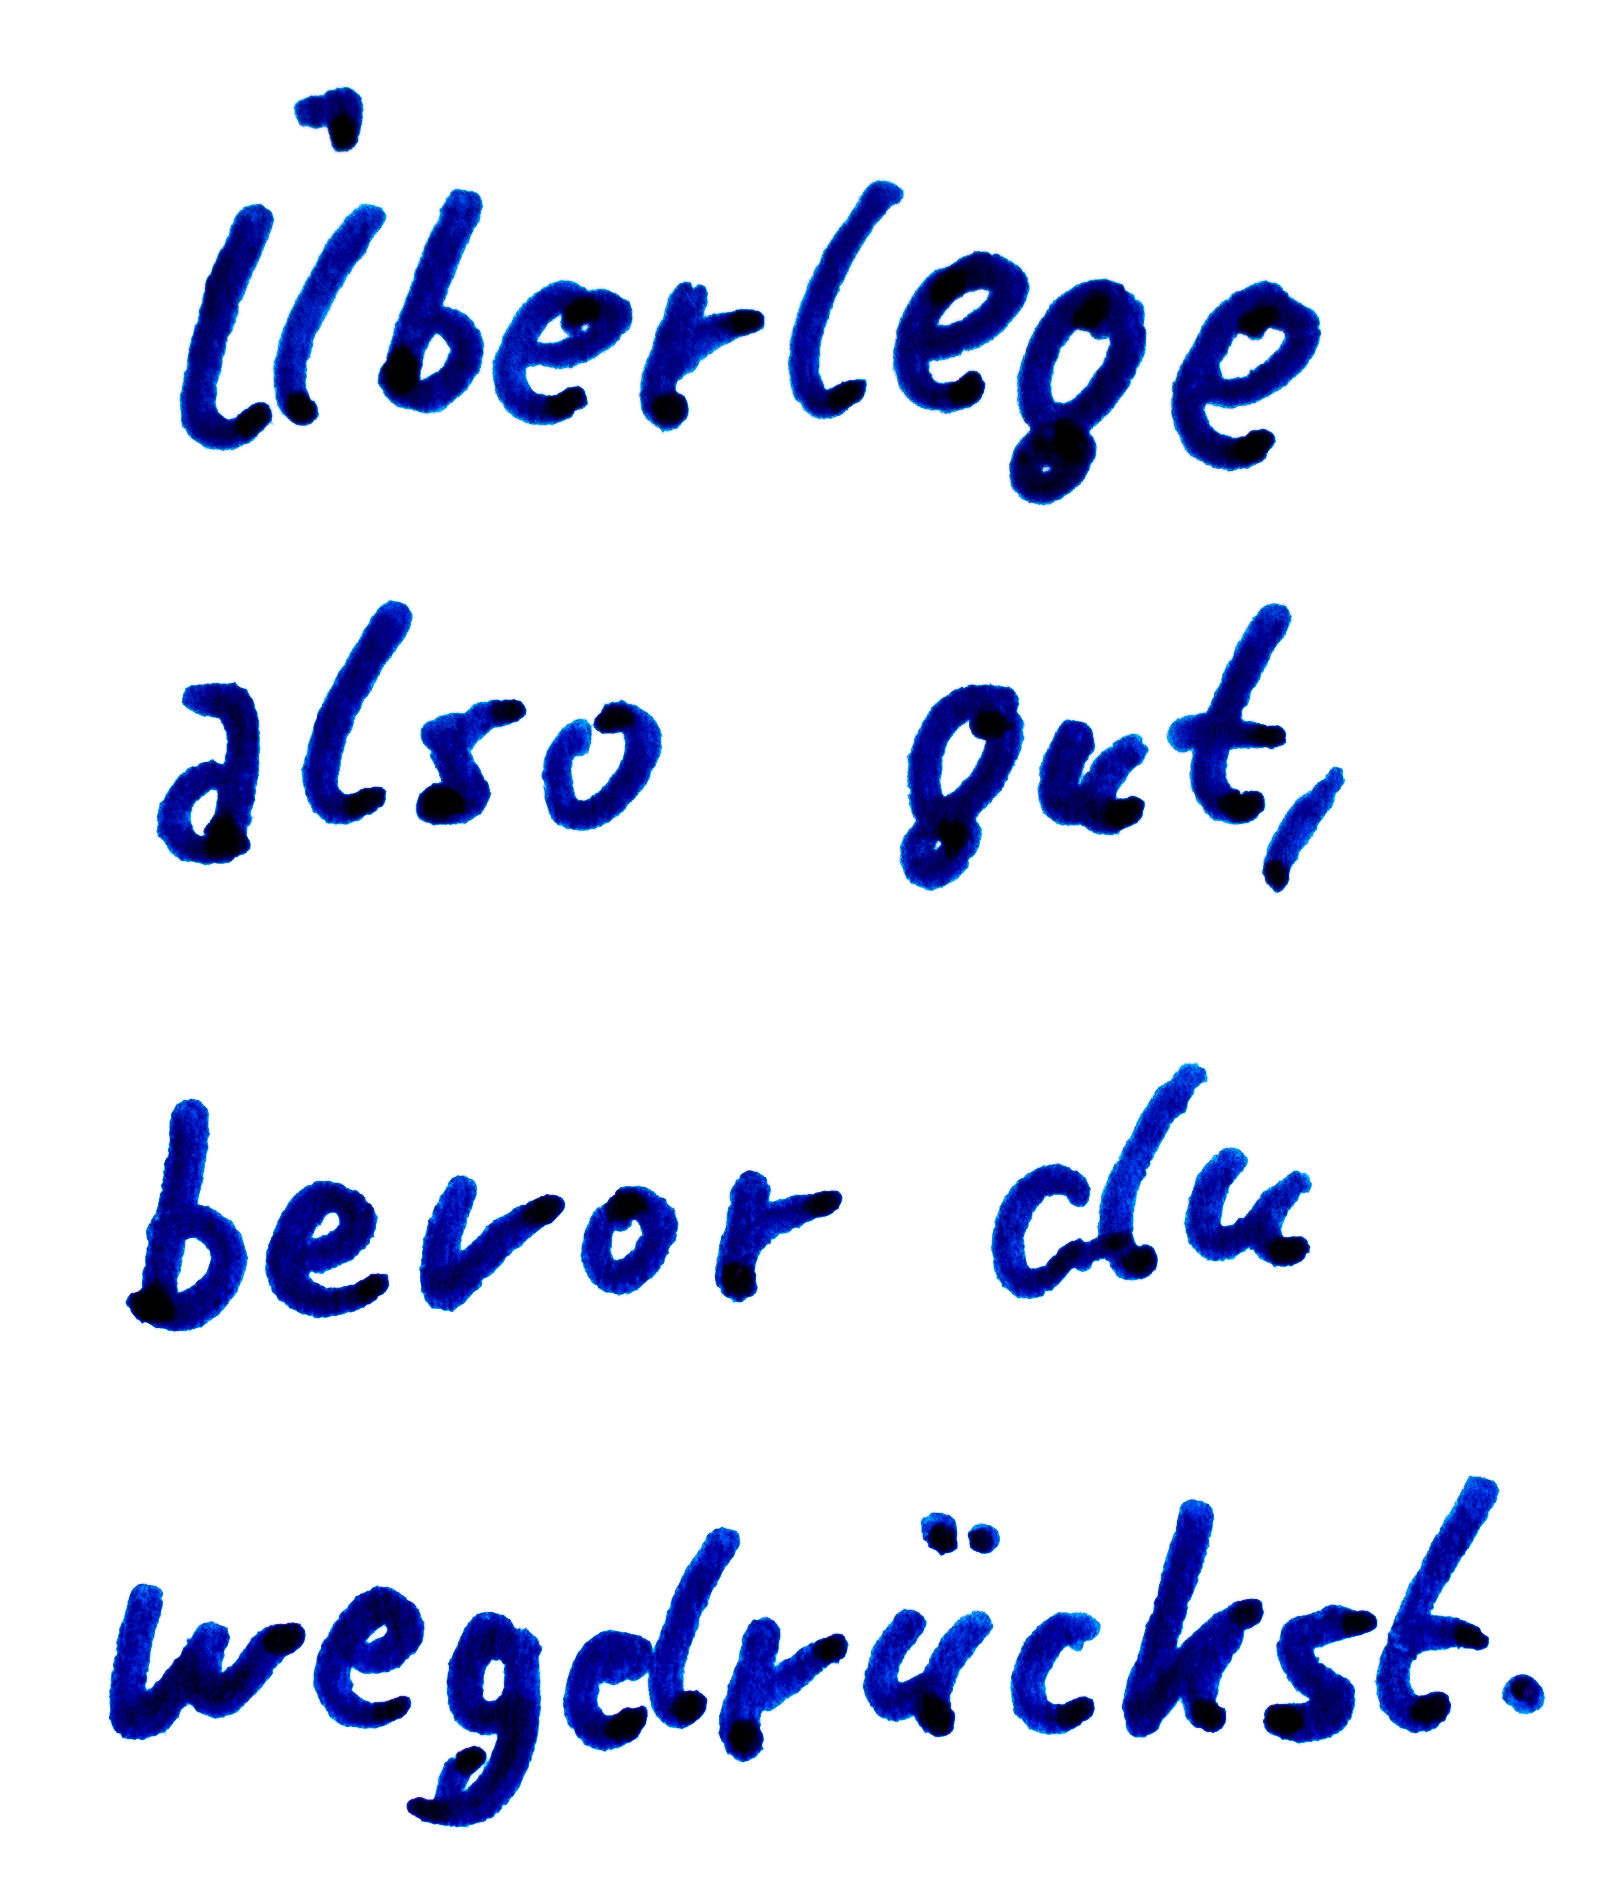 Überlege
also gut,
bevor du
wegdrückst.